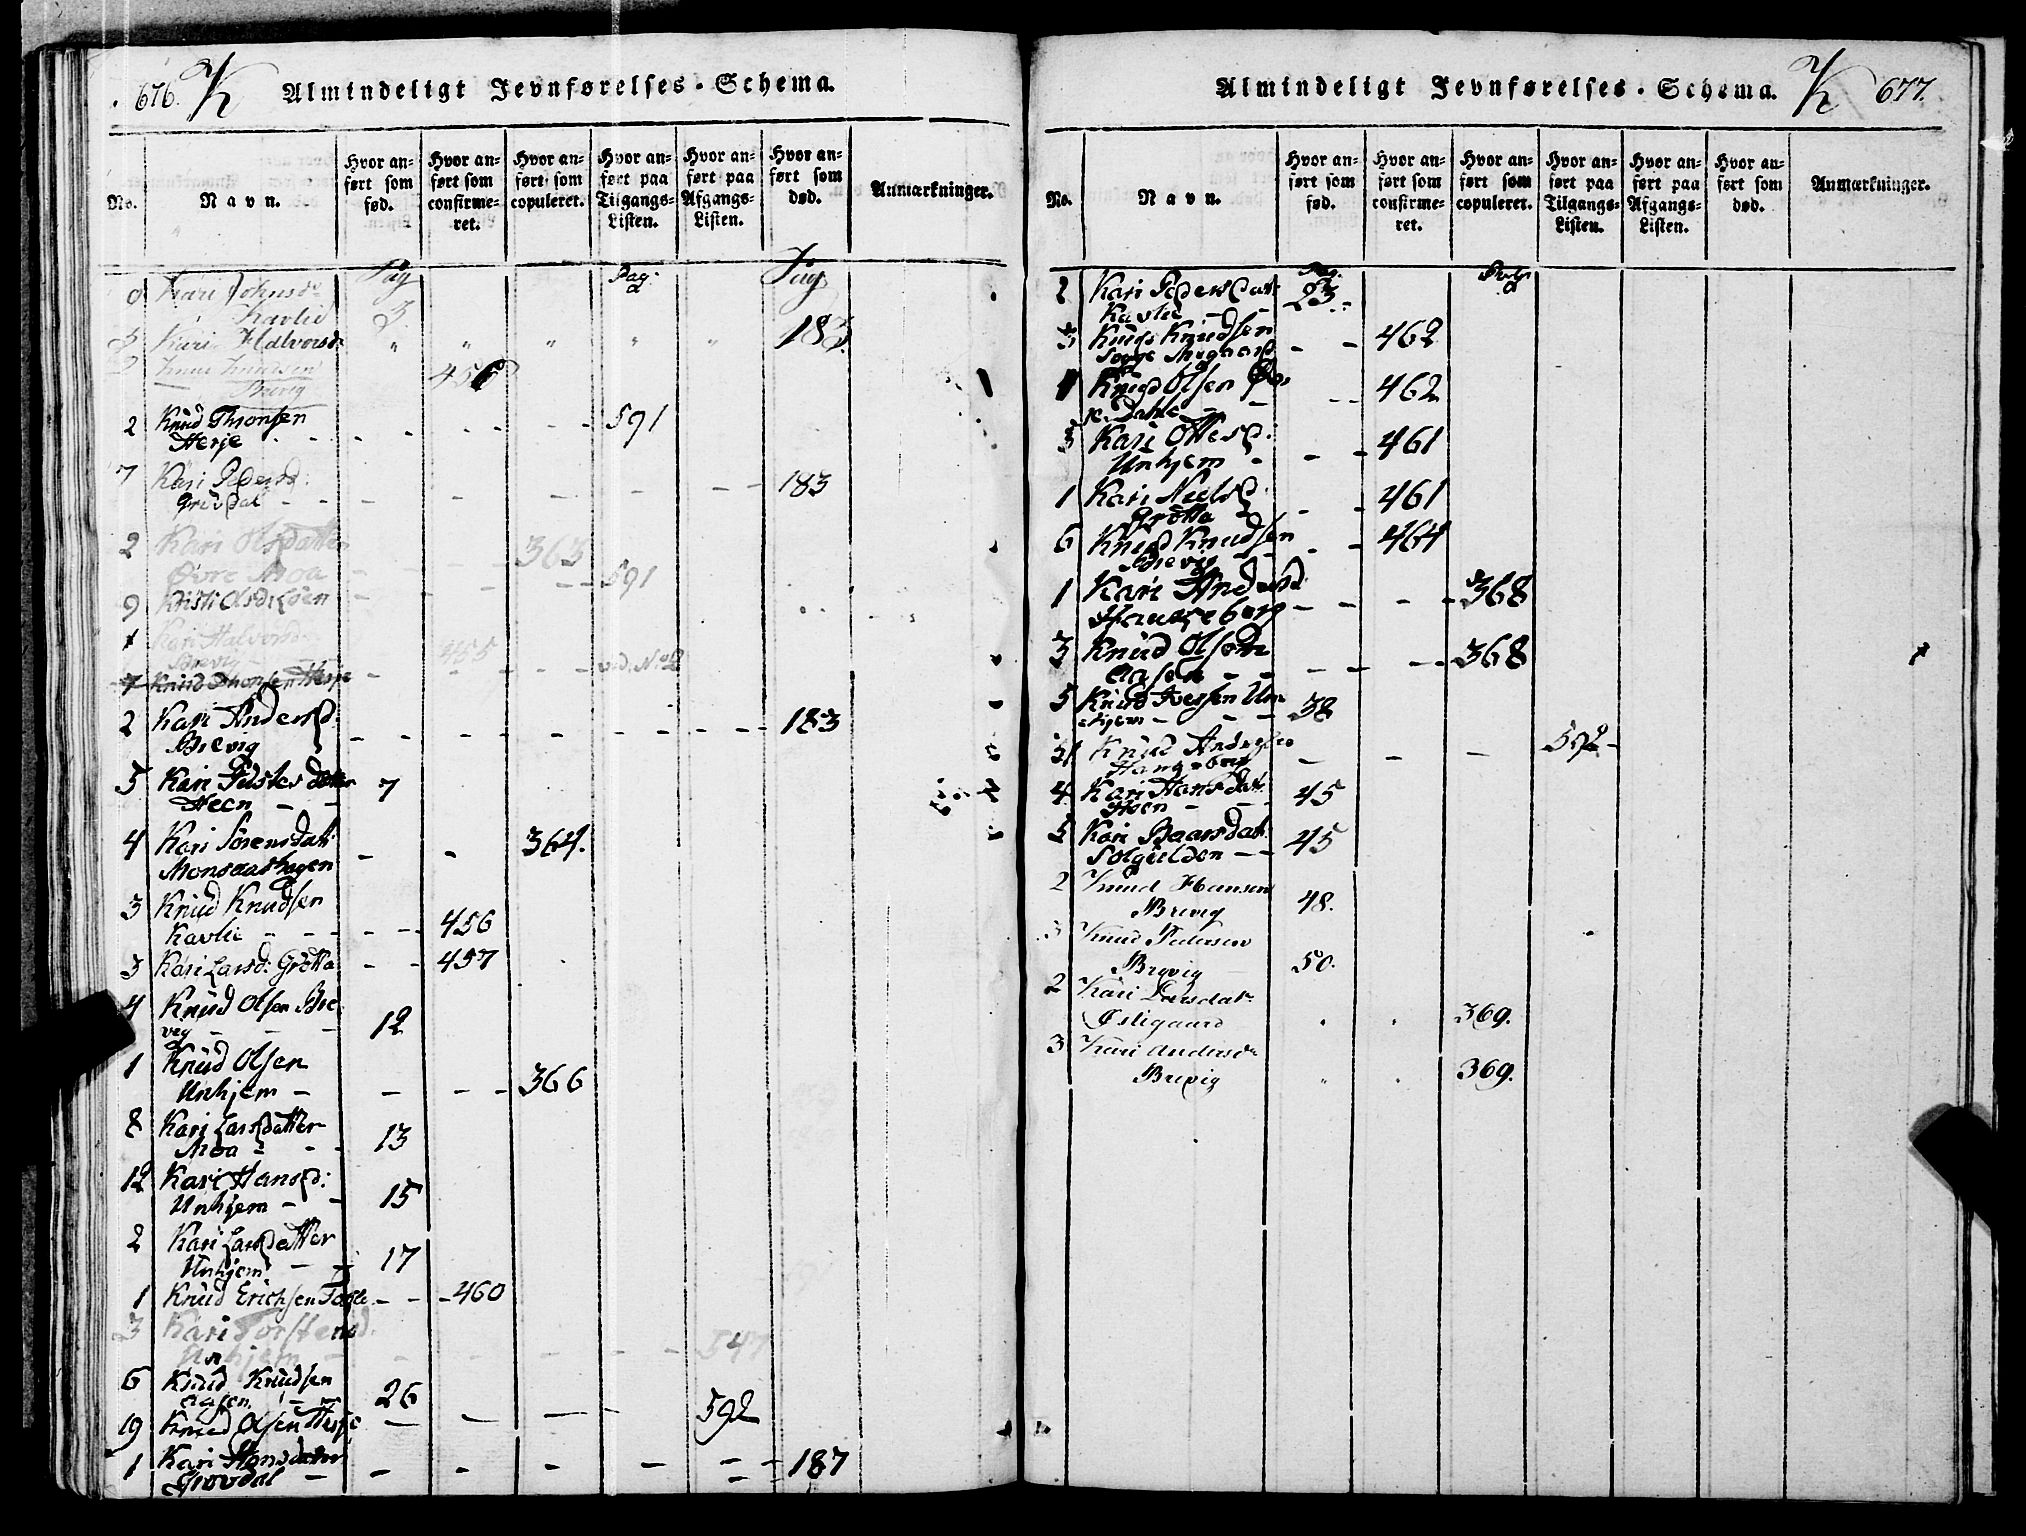 676. K Almindeligt Jevnførelses-Schema.
No.
Navn.
Hvor an-
ført som
fød.
Hvor an-
ført som
confirme-
ret.
Hvor an-
ført som
copuleret.
Hvor an-
ført paa
Tilgangs-
Listen.
Hvor an-
ført paa
Afgangs-
Listen.
Hvor an-
ført som
død.
Anmærkninger.
Pag Pag: Pag
Kari Johnsdr
Kavlie 3.
3 Kari Halvorsdr " " " " " 183.
Knud Knudsen 456
Brevig
2 Knud Thronsen 591
Herje
7 Kari Pedersd: 183
Grüvdal
2 Kari Olsdatter 363
Øvre Moa
9 Kristi Olsd: Løen 591
1 Kari Halvorsdr 455
Brevig
7 Knud Thronsen Herje vid. No 2
2 Kari Andersd: 183
Brevig
5 Kari Gulsetdatter 7
Heen
4 Kari Sörensdatr 364.
Monsaashagen
3 Knud Knudsen
Kavlie 456
3 Kari Larsd: Grötta 457
4 Knud Olsen Bre
vig 12
1 Knud Olsen
Unhjem 366
8 Kari Larsdatter
Moa 13
12 Kari Hansd:
Unhjem 15
2 Kari Larsdatter
Unhjem 17
1 Knud Erichsen Fogle 460
3 Kari Torstensd.
Unhjem 547
6 Knud Knudsen
Aasen 26
19 Knud Olsen Herje 592
1 Kari Hansdatter
Grovdal 187
Almindeligt Jevnførelses-Schema. K 677.
No.
Navn.
Hvor an-
ført som
fød.
Hvor an-
ført som
confirme-
ret.
Hvor an-
ført som
copuleret.
Hvor an-
ført paa
Tilgangs-
Listen.
Hvor an-
ført paa
Afgangs-
Listen.
Hvor an-
ført som
død.
Anmærkninger.
Pag.
2 Kari Pedersdatr 23
Kavlie
3 Knud Knudsen 462
1 Knud Olsen 462
Dahle
3 Kari Ottesd: 461
Unhjem
1 Kari Nielsd: 461
Grötta
6 Knud Knudsen 464
Brevig
1 Kari Andersd 368
Haugeberg
3 Knud Olsen 368
Aasen
5 Knud Iversen Un
hjem 38
Knud Andersen 592
Haugeberg
4 Kari Hansdatr 45
Heen
5 Kari Baarsdat.
Solgielden 45
2 Knud Hansen
Brevig 48.
3 Knud Pedersen
Brevig 50.
2 Kari Larsdatr
Østigaard 369.
3 Kari Andersdr
Brevig 369.